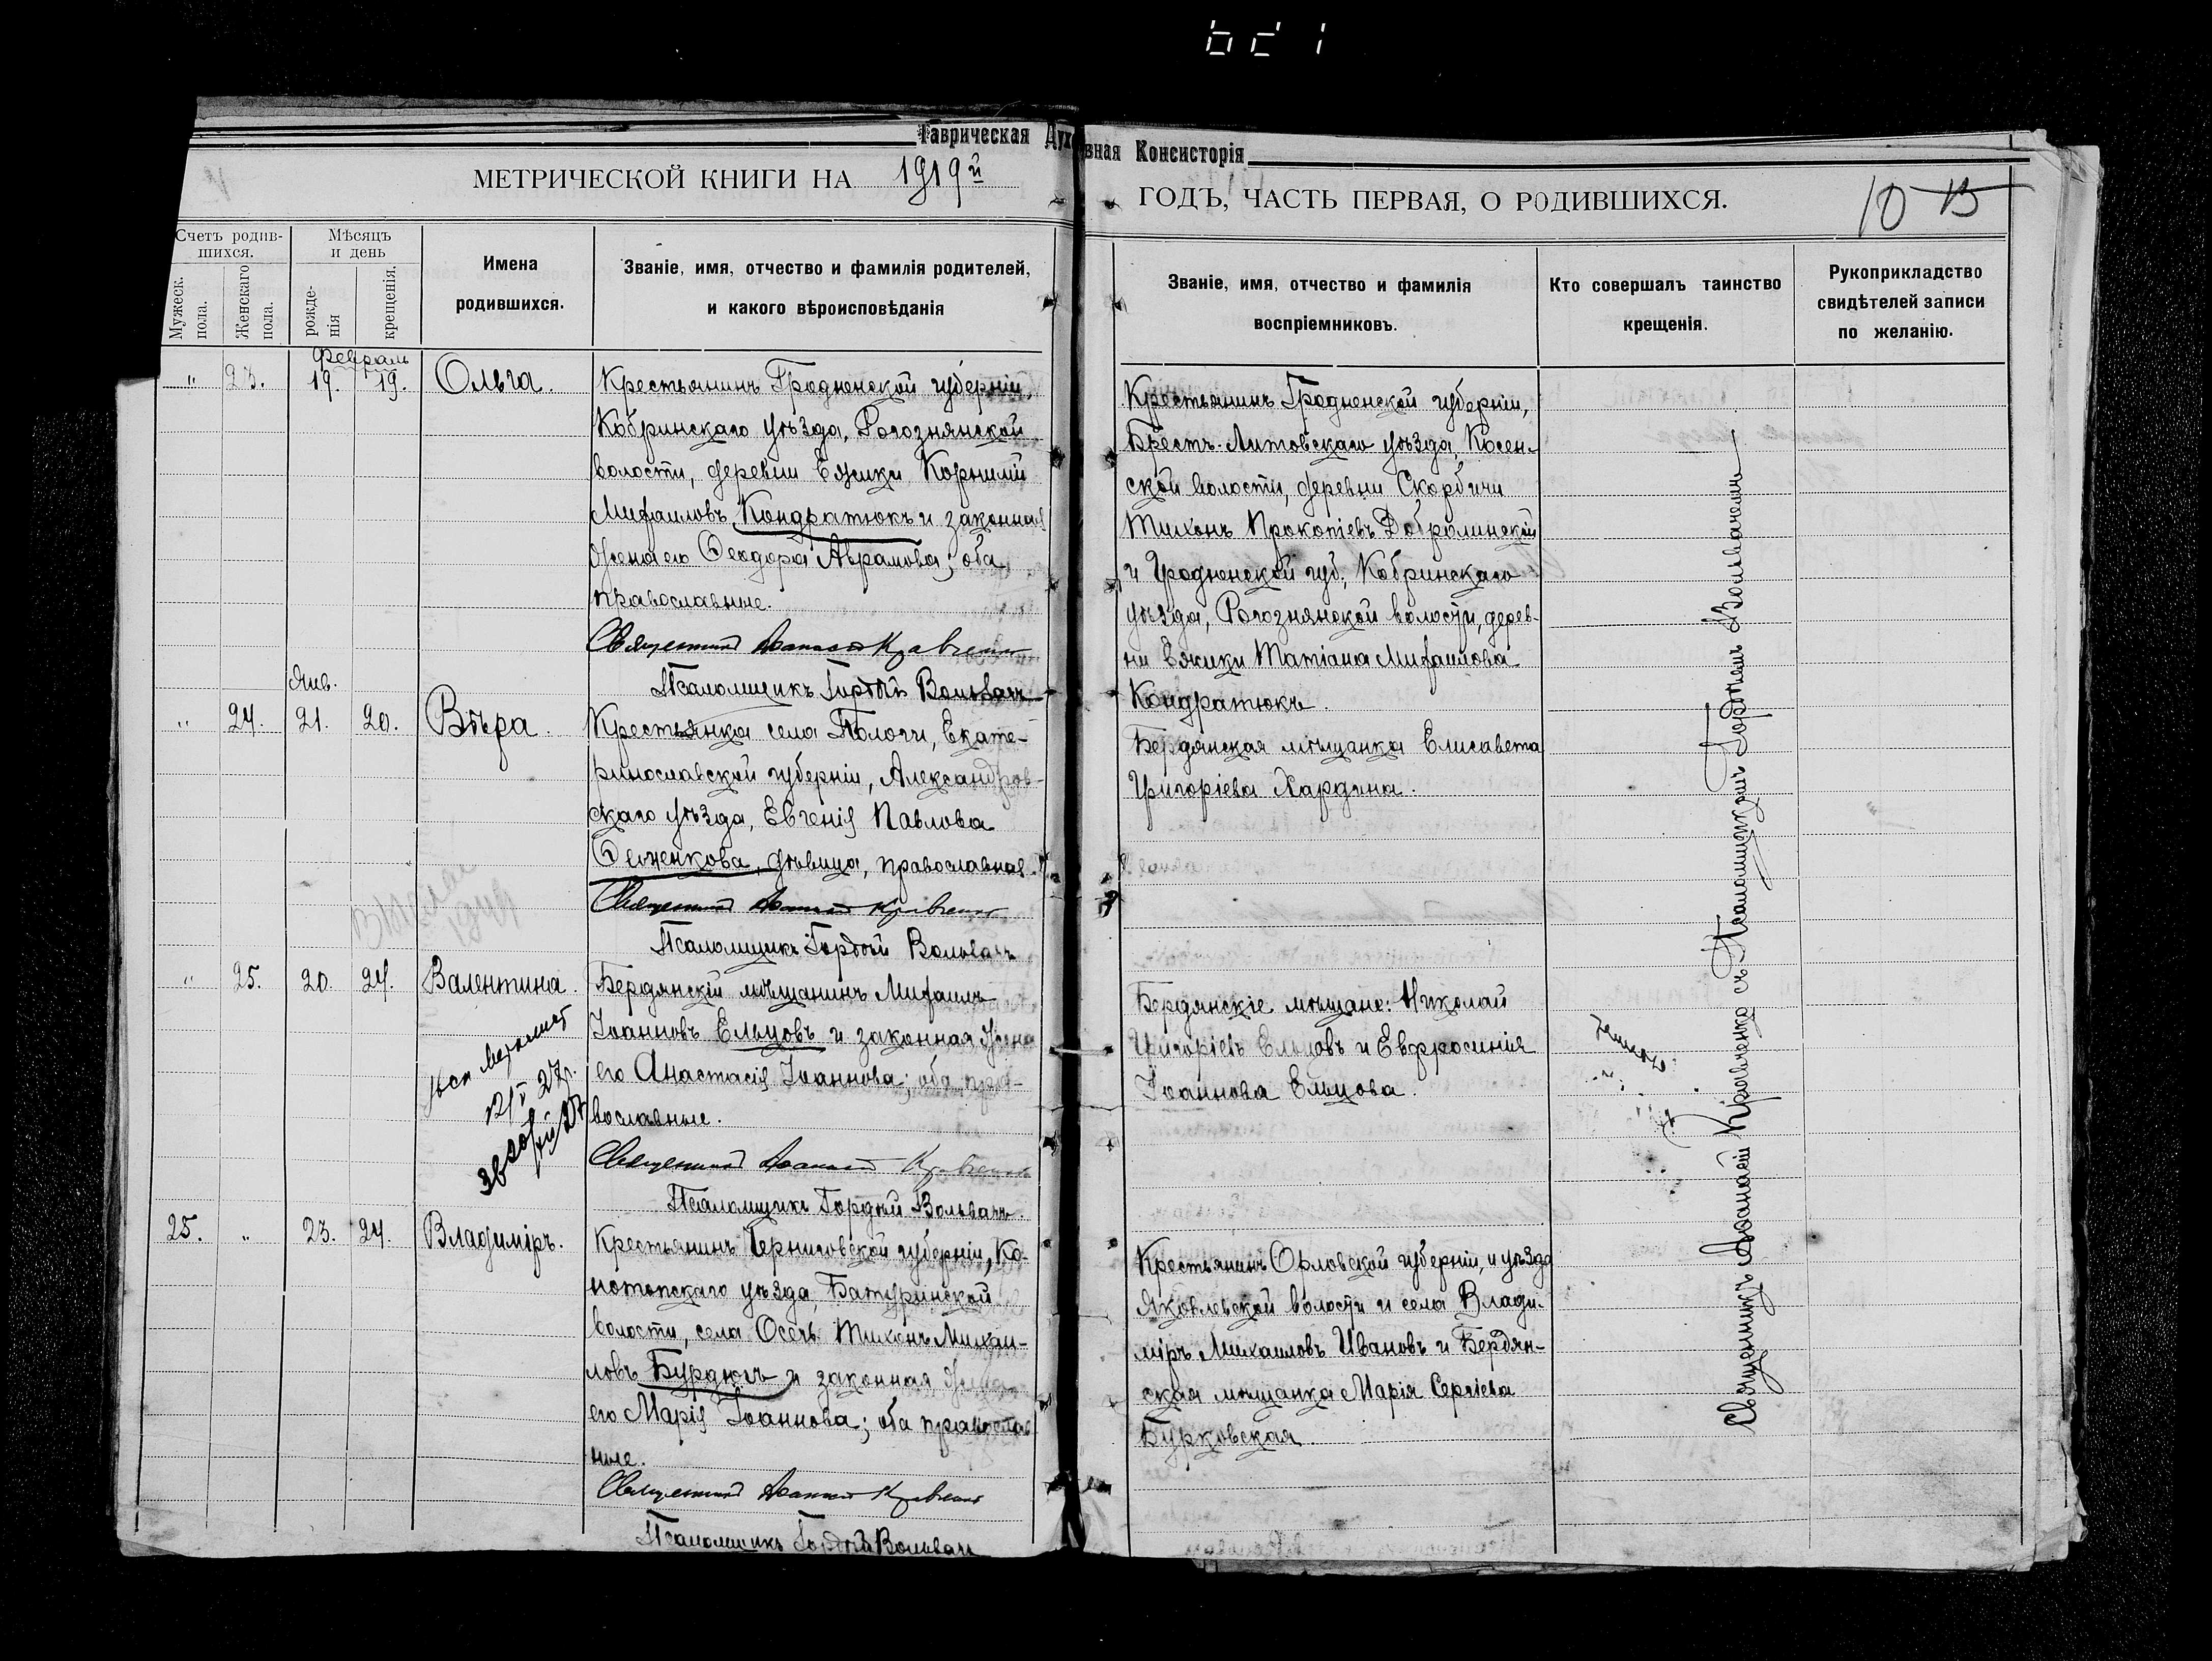 Таврическая Духовная Консисторія
МЕТРИЧЕСКОЙ КНИГИ НА 1919й
ГОДЪ, ЧАСТЬ ПЕРВАЯ, О РОДИВШИХСЯ.
10 13
Счетъ родив-
шихся.
Мужеск.
пола.
Женскаго
пола.
Мѣсяцъ
и день
рожде-
нія
крещенія.
Имена
родившихся.
Званіе, имя, отчество и фамилія родителей,
и какого вѣроисповѣданія
Званіе, имя, отчество и фамилія
воспріемниковъ.
Кто совершалъ таинство
крещенія.
Рукоприкладство
свидѣтелей записи
по желанію.
Февраль
" 23. 19. 19. Ольга.
Крестьянинъ Гродненской губерніи,
Кобринскаго уѣзда, Рогознянской
волости, деревни Ежики Корнилій
Михаиловъ Кондратюкъ и законная
жена его Ѳеодора Аврамова; оба
православные.
Священникъ Афанасій Кравченко
Псаломщикъ Гордѣй Вольвачъ
Крестьянинъ Гродненской губерніи,
Брестъ-Литовскаго уѣзда, Косен-
ской волости, деревни Скорбичи
Тихонъ Прокопіевъ Добролинскій
и Гродненской губ., Кобринскаго
уѣзда, Рогознянской волости, дерев-
ни Ежики Татіана Михаилова
Кондратюкъ.
Янв.
" 24. 21. 20. Вѣра.
Крестьянка села Пологи, Екате-
ринославской губерніи, Александров-
скаго уѣзда, Евгенія Павлова
дѣвица, православная.
Священникъ Афанасій Кравченко
Псаломщикъ Гордѣй Вольвачъ
Бердянская мѣщанка Елисавета
Григоріева Хардина.
" 25. 20. 24. Валентина.
Бердянскій мѣщанинъ Михаилъ
Іоанновъ Ельцовъ и законная жена
его Анастасія Іоаннова; оба пра-
вославные.
Священникъ Афанасій Кравченко
Псаломщикъ Гордѣй Вольвачъ.
Бердянскіе мѣщане: Николай
Григоріевъ Ельцовъ и Евфросинія
Іоаннова Ельцова.
25. " 23. 24. Владиміръ.
Крестьянинъ Черниговской губерніи, Ко-
нотопскаго уѣзда, Батуринской
волости, села Осечь Тихонъ Михаи-
ловъ и законная жена
его Марія Іоаннова; оба православ-
ные.
Священникъ Афанасій Кравченко
Псаломщикъ Гордѣй Вольвачъ
Крестьянинъ Орловской губерніи, и уѣзда
Яковлевской волости и села Влади-
міръ Михаиловъ Ивановъ и Бердян-
ская мѣщанка Марія Сергіева
Бурковская.
Священникъ Афанасій Кравченко съ Псаломщикомъ Гордѣемъ Вольвачемъ